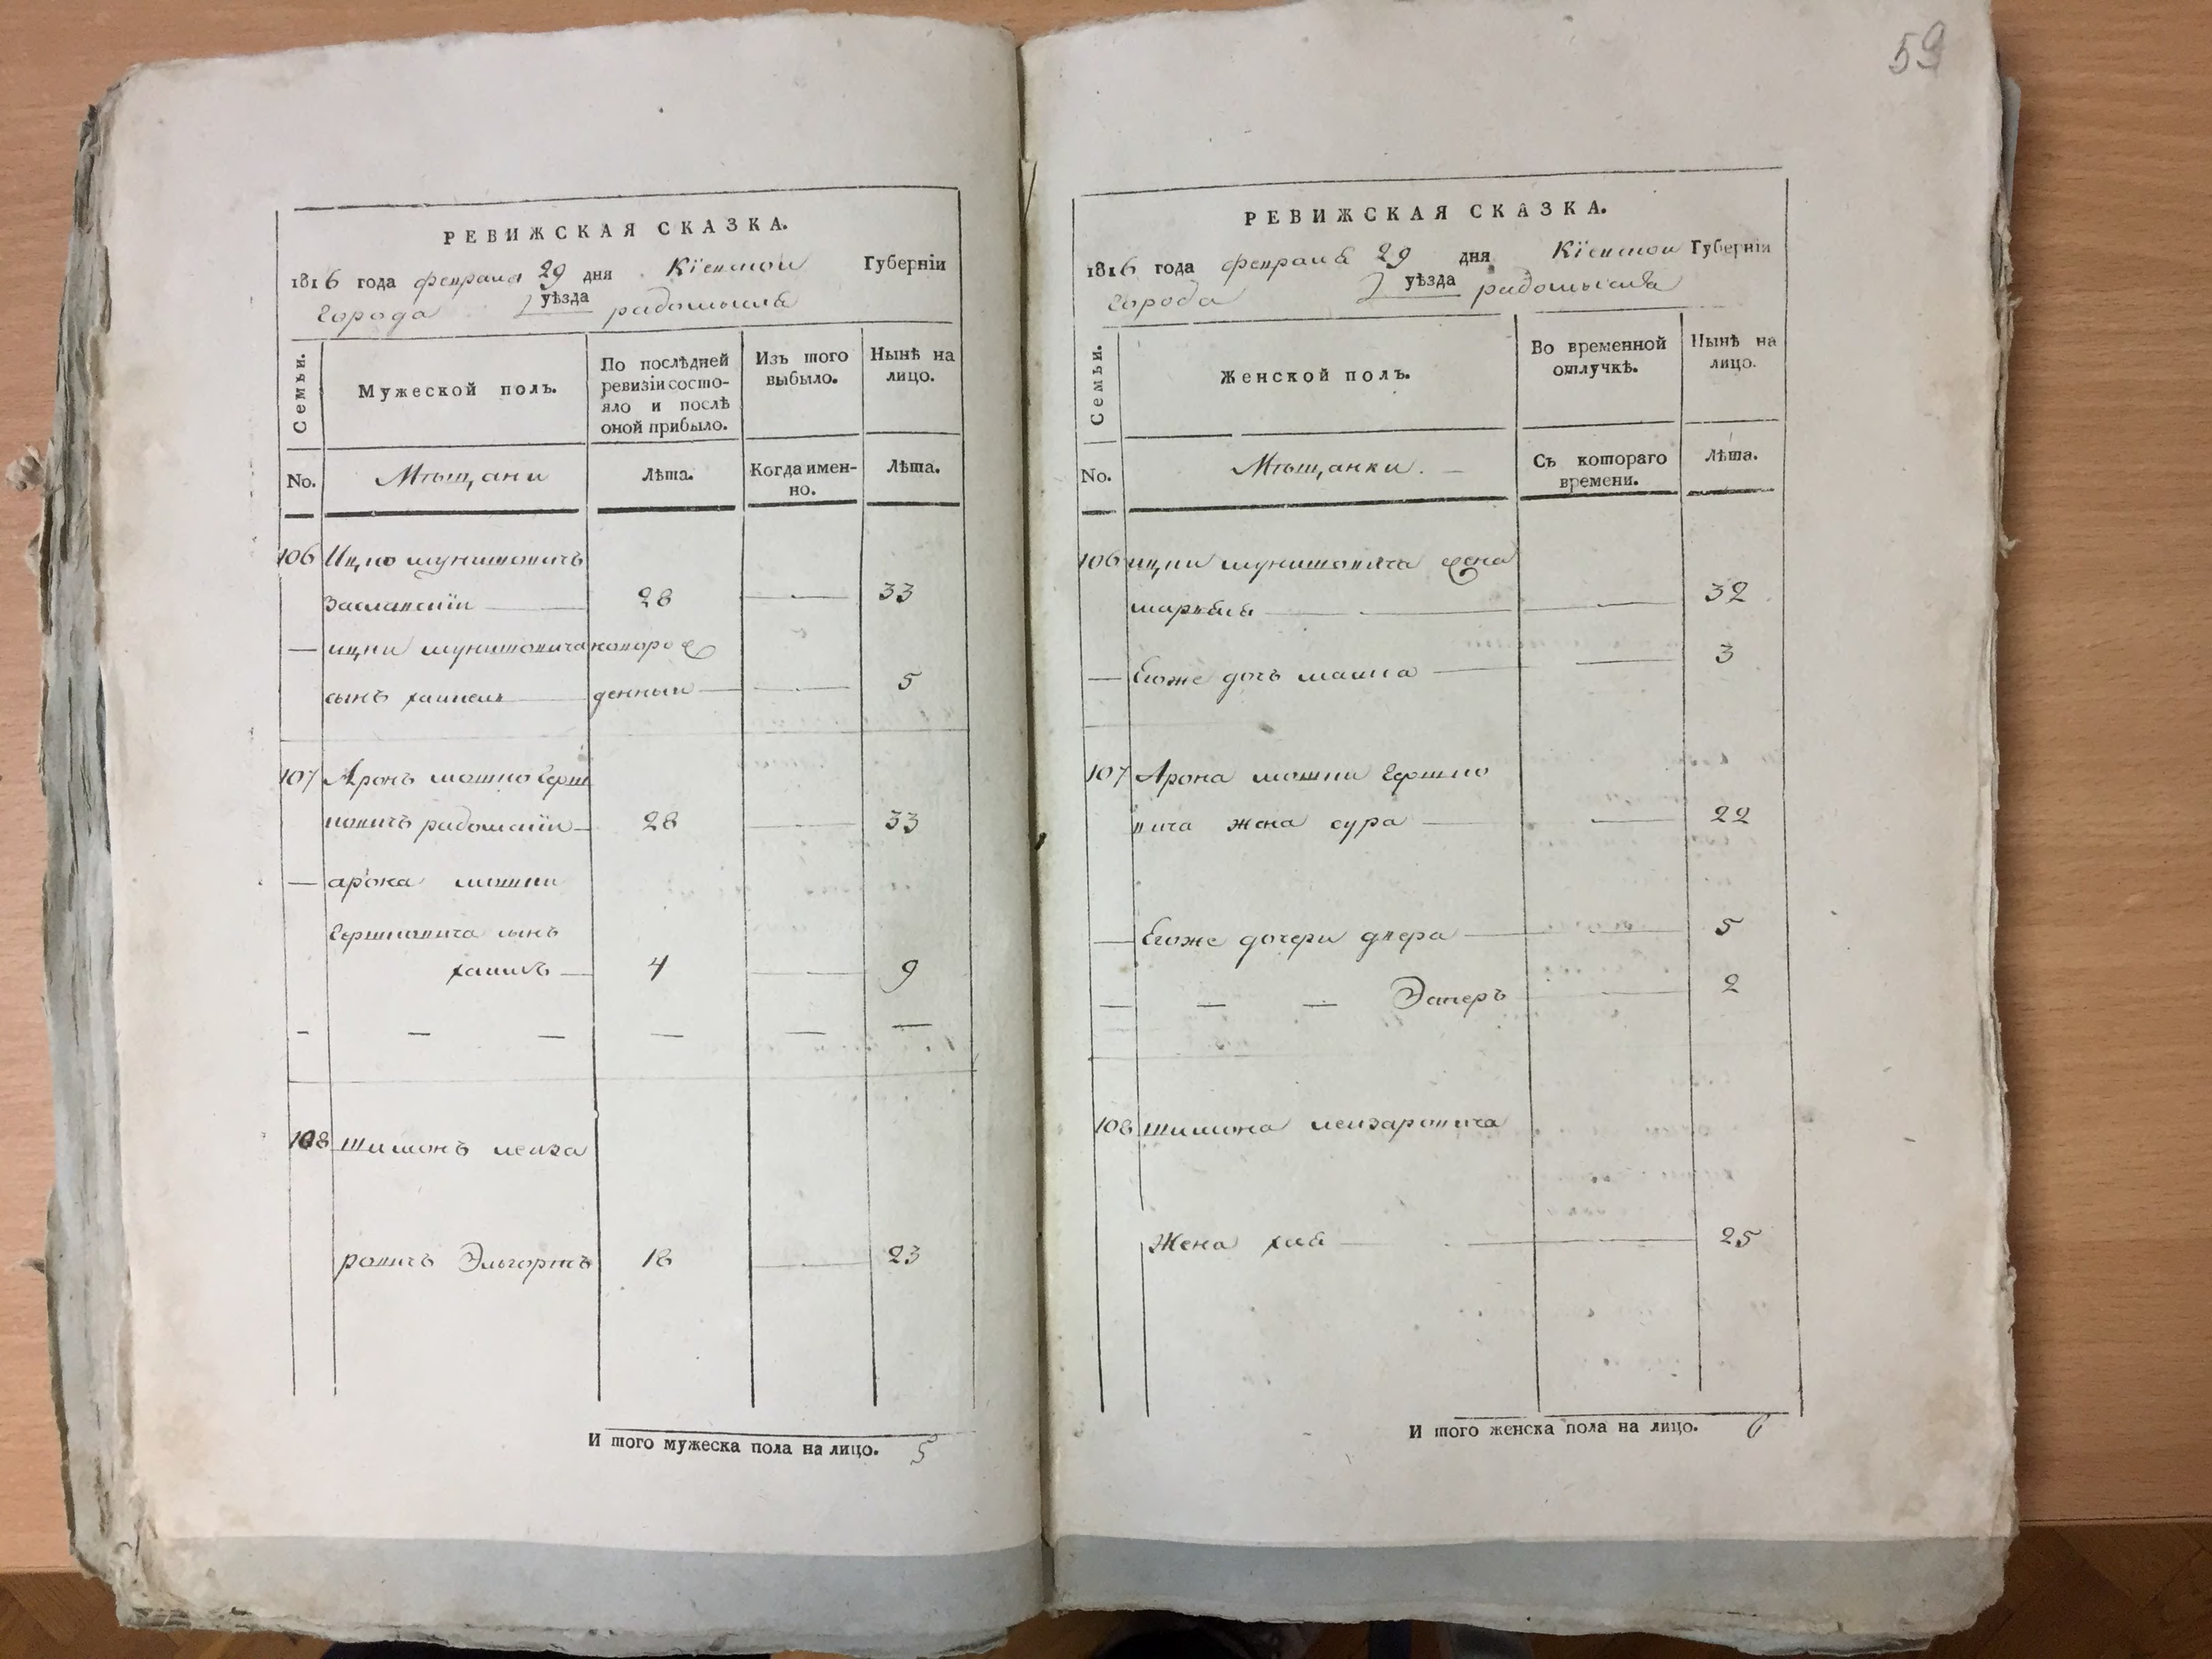 59
РЕВИЖСКАЯ СКАЗКА.
1816 года февраля 29 дня Кіевской Губерніи
Города уѣзда радомысля
Семьи.
Мужеской полъ.
По послѣдней
ревизіи состо-
яло и послѣ
оной прибыло.
Изъ того
выбыло.
Нынѣ на
лицо.
No.
Мѣщани
Лѣта.
Когда имен-
но.
Лѣта.
106 Ицко мунишовичъ
Заславскіи 28 33
ицки мунишовича новорож
сынъ хаикель денныи 5
107 Аронъ мошко Герш
ковичъ радомскіи 28 33
арона мошки
Гершковича сынъ
хаимъ 4 9
108 шимонъ леиза
ровичъ Эльгортъ 18 23
И того мужеска пола на лицо. 5
РЕВИЖСКАЯ СКАЗКА.
1816 года февраля 29 дня Кіевской Губерніи
Города уѣзда радомысля
Семьи.
Женской полъ.
Во временной
отлучкѣ.
Нынѣ на
лицо.
No.
Мѣщанки.
Съ котораго
времени.
Лѣта.
106 ицки мунишовича жена
32
Егоже дочь 3
107 Арона мошки Гершко
вича жена сура 22
Егоже дочери двера 5
Эстеръ 2
108 шимона леизаровича
Жена хая 25
И того женска пола на лицо. 6